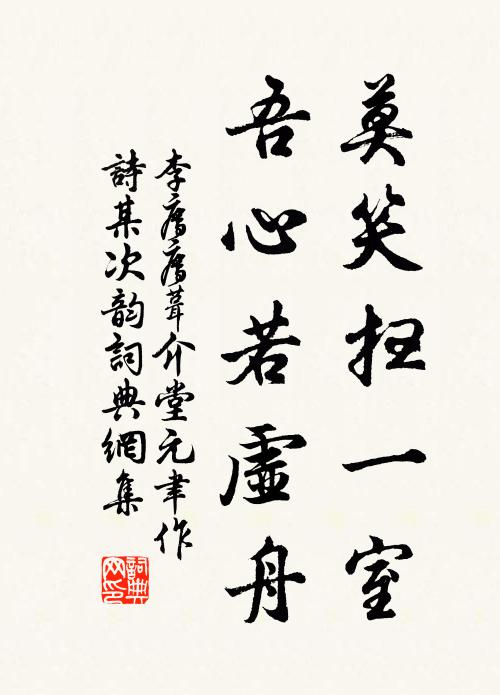 莫笑扫一室
吾心若虛舟
李廌廌葺介堂元聿作
詩某次韵詞典網集
詞典
网印